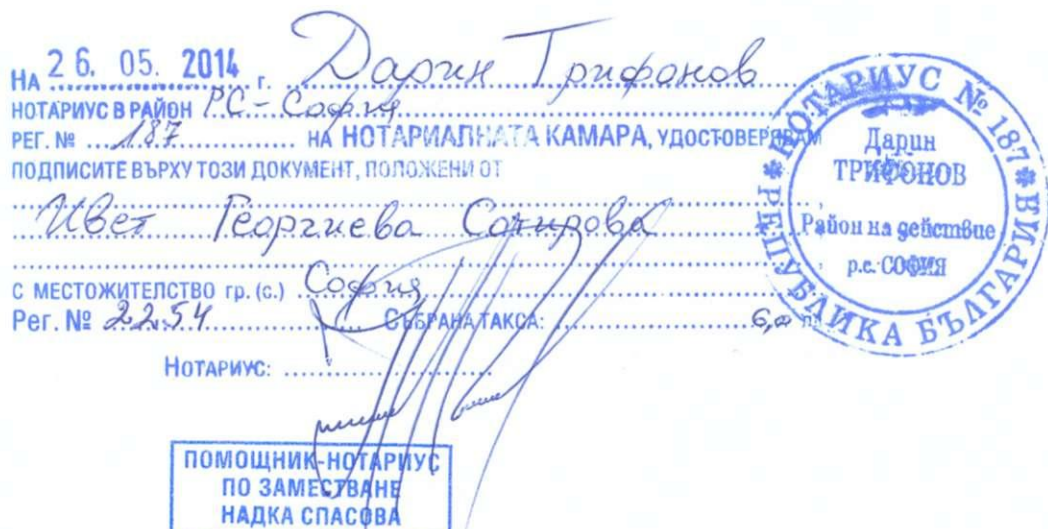 НА 26. 05. 2014 г. Дарин Трифонов
НОТАРИУС В РАЙОН РС - София
РЕГ. № 187 НА НОТАРИАЛНАТА КАМАРА, УДОСТОВЕРЯВАМ
ПОДПИСИТЕ ВЪРХУ ТОЗИ ДОКУМЕНТ, ПОЛОЖЕНИ ОТ
Ивет Георгиева Сотирова
С МЕСТОЖИТЕЛСТВО гр. (с.) София
Рег. № 2254 СЪБРАНА ТАКСА: 6,00 лв
НОТАРИУС:
ПОМОЩНИК-НОТАРИУС
ПО ЗАМЕСТВАНЕ
НАДКА СПАСОВА
НОТАРИУС № 187 * РЕПУБЛИКА БЪЛГАРИЯ *
Дарин
ТРИФОНОВ
Район на действие
р.с. СОФИЯ